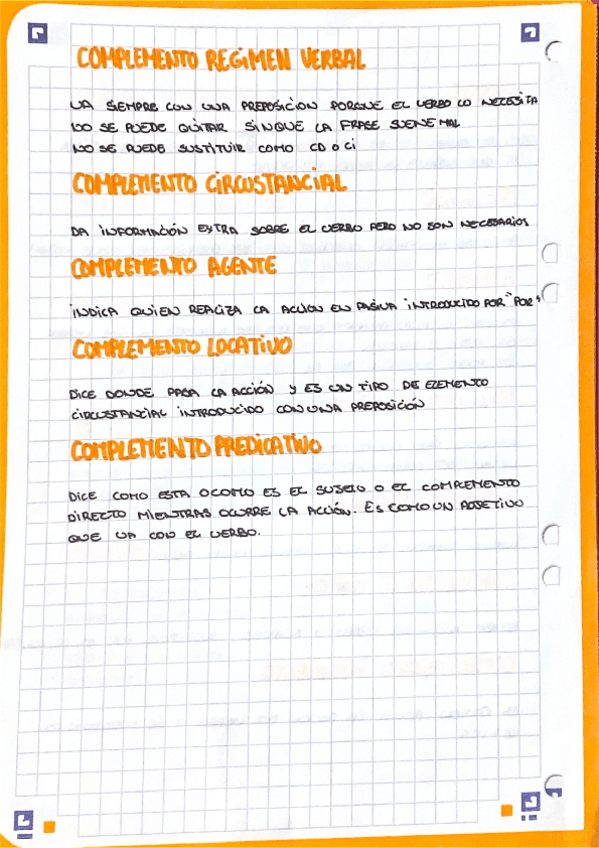 COMPLEMENTO REGIMEN VERBAL
VA SIEMPRE CON UNA PREPOSICION PORQUE EL VERBO LO NECESITA
NO SE PUEDE QUITAR SIN QUE LA FRASE SUENE MAL
NO SE PUEDE SUSTITUIR COMO CD O CI
COMPLEMENTO CIRCUSTANCIAL
DA INFORMACIÓN EXTRA SOBRE EL VERBO PERO NO SON NECESARIOS
COMPLEMENTO AGENTE
INDICA QUIEN REALIZA LA ACCION EN PASIVA INTRODUCIDO POR "POR"
COMPLEMENTO LOCATIVO
DICE DONDE PASA LA ACCIÓN Y ES UN TIPO DE ELEMENTO
CIRCUSTANCIAL INTRODUCIDO CON UNA PREPOSICIÓN
COMPLEMENTO PREDICATIVO
DICE COMO ESTA O COMO ES EL SUJETO O EL COMPLEMENTO
DIRECTO MIENTRAS OCURRE LA ACCIÓN. ES COMO UN ADJETIVO
QUE VA CON EL VERBO.